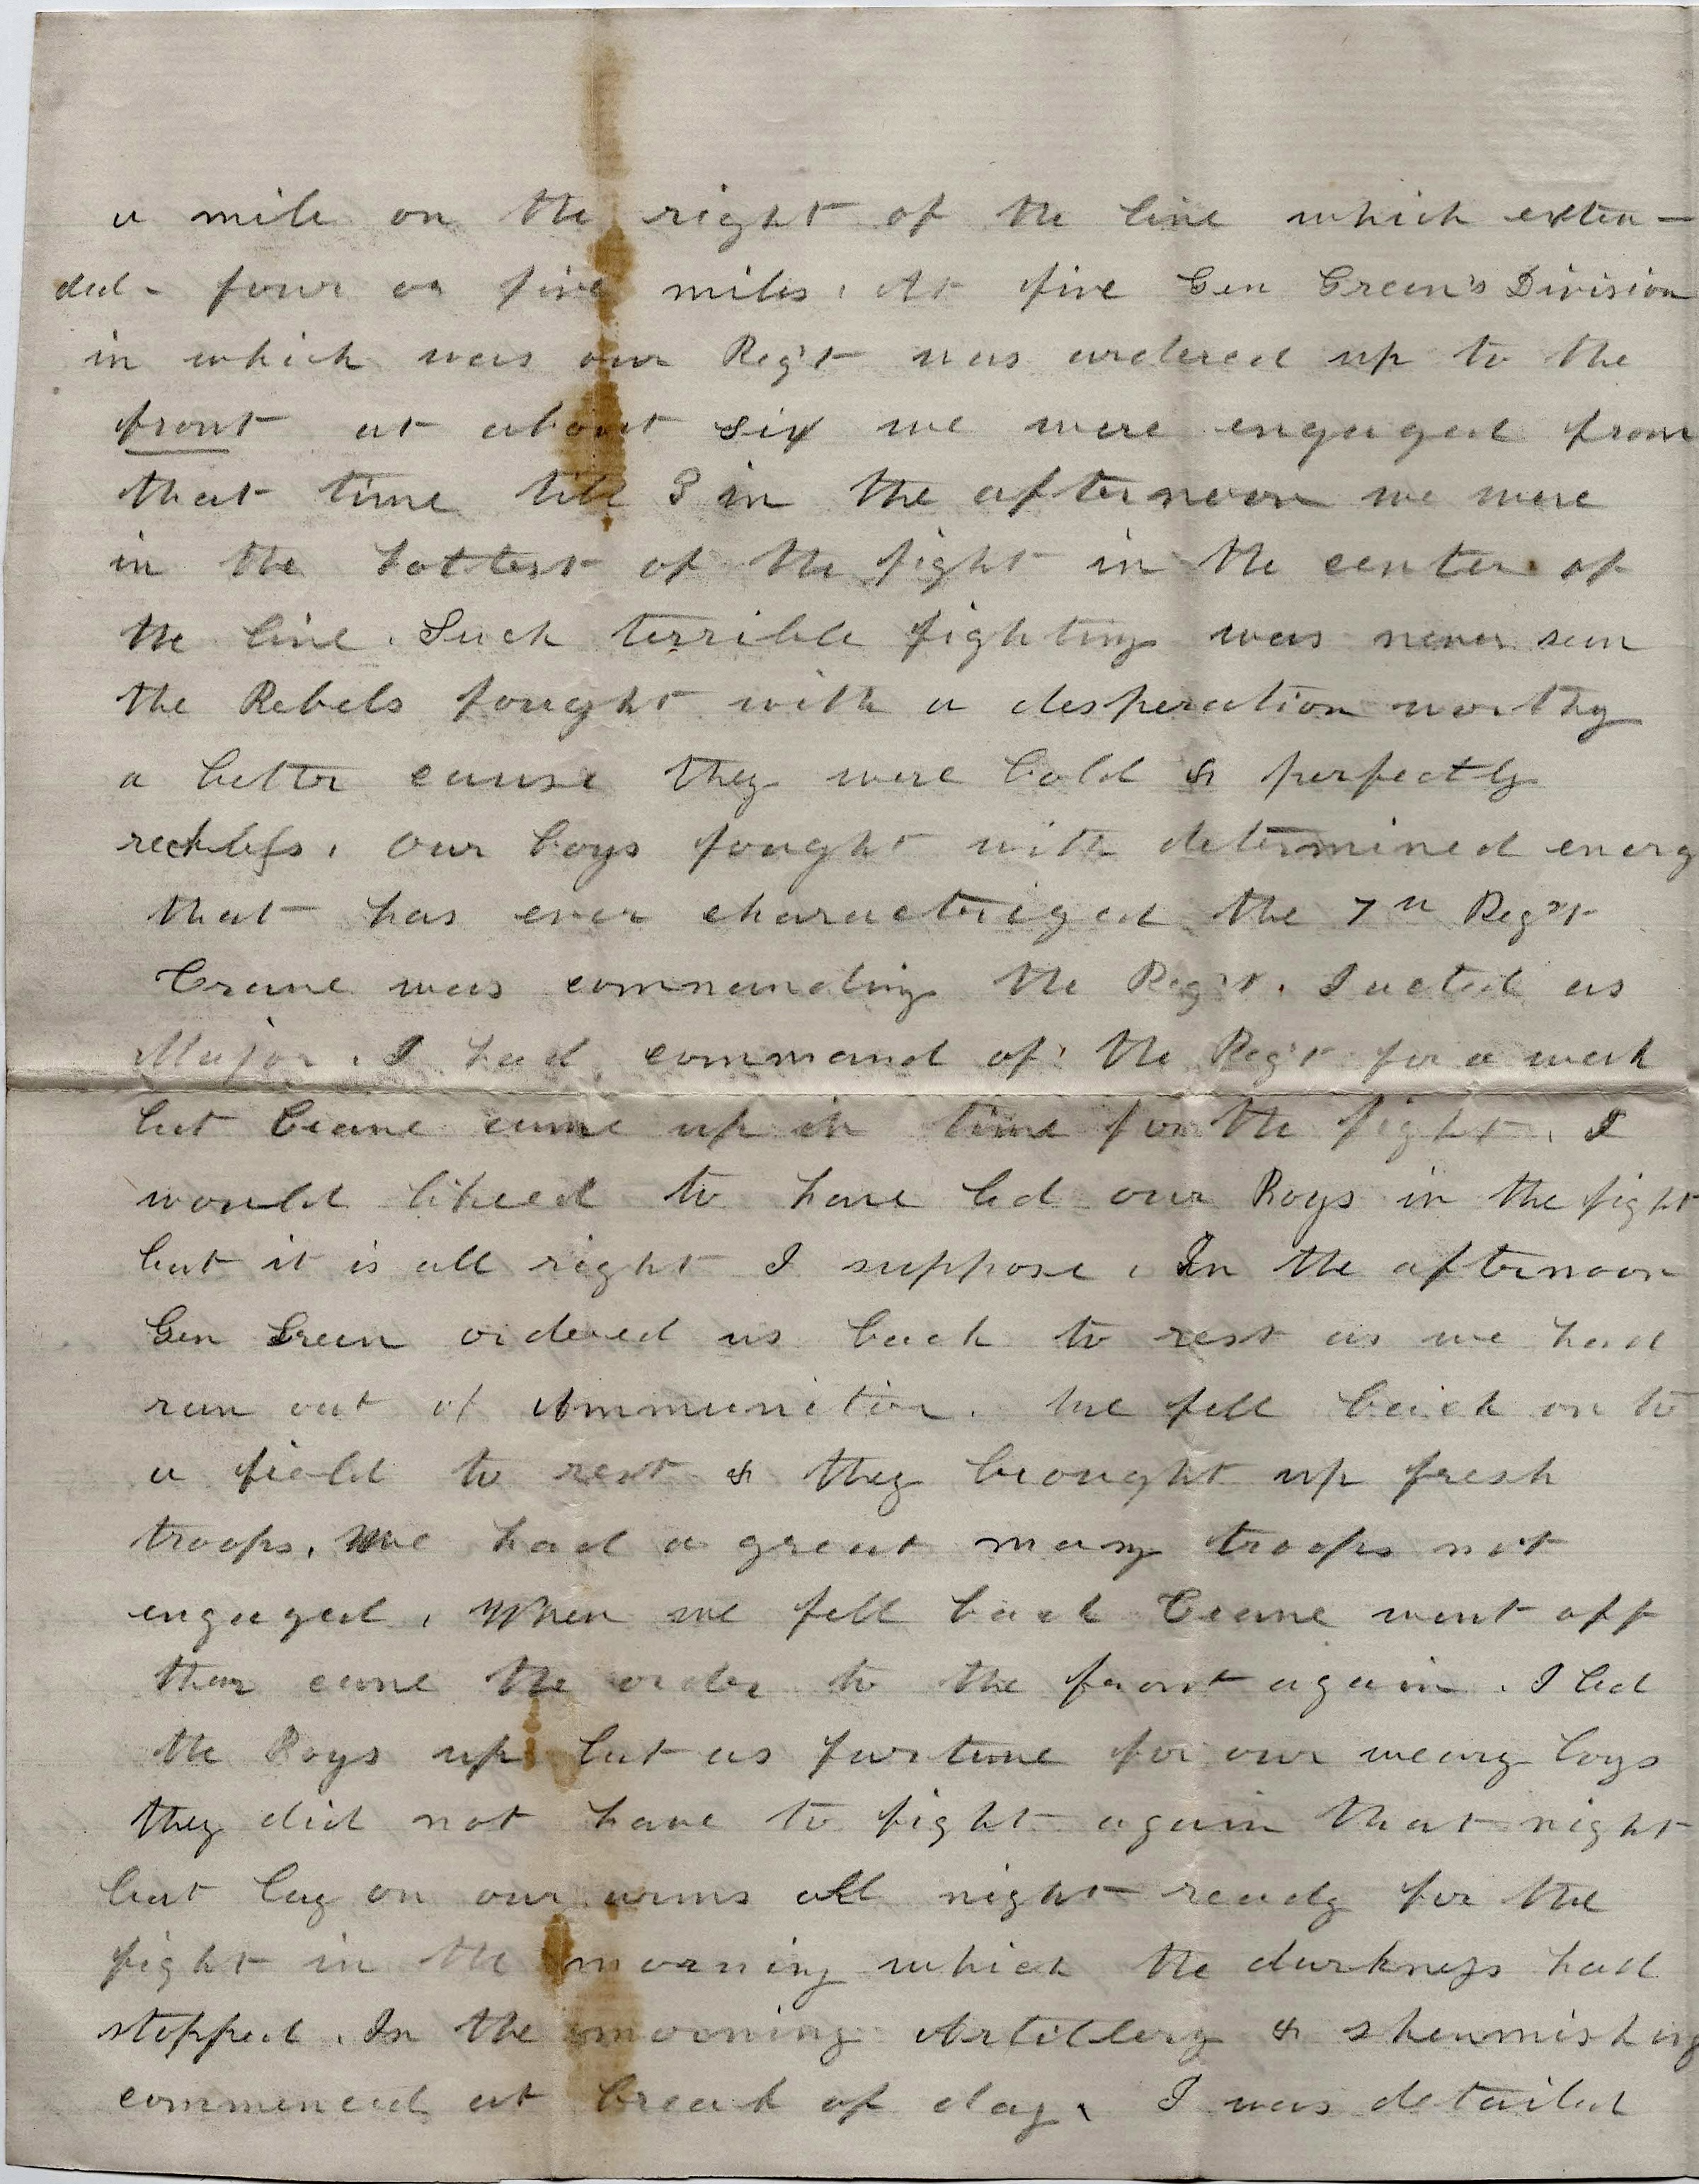 a mile on the right of the line which exten-
ded - four or five miles. At five Gen Green's Division
in which was our Reg't was ordered up to the
front at about six we were engaged from
that time till 3 in the afternoon we were
in the hottest of the fight in the center of
the line. Such terrible fighting was never seen
the Rebels fought with a desperation worthy
a better cause they were bold & perfectly
reckless. Our boys fought with determined energ
that has ever characterized the 7th Reg't
Crane was commanding the Reg't. I acted as
Major. I had command of the Reg't for a week
but Crane came up in time for the fight. I
would likeed to have led our Boys in the fight
but it is all right I suppose. In the afternoon
Gen Green ordered us back to rest as we had
run out of Ammunition. We fell back on to
a field to rest & they brought up fresh
troops. We had a great many troops not
engaged. When we fell back Crane went off
then came the order to the front again. I led
the Boys up but as fortune for our weary boys
they did not have to fight again that night
but lay on our arms all night ready for the
fight in the morning which the darkness had
stopped. In the morning Artillery & skirmishing
commenced at break of day. I was detailed